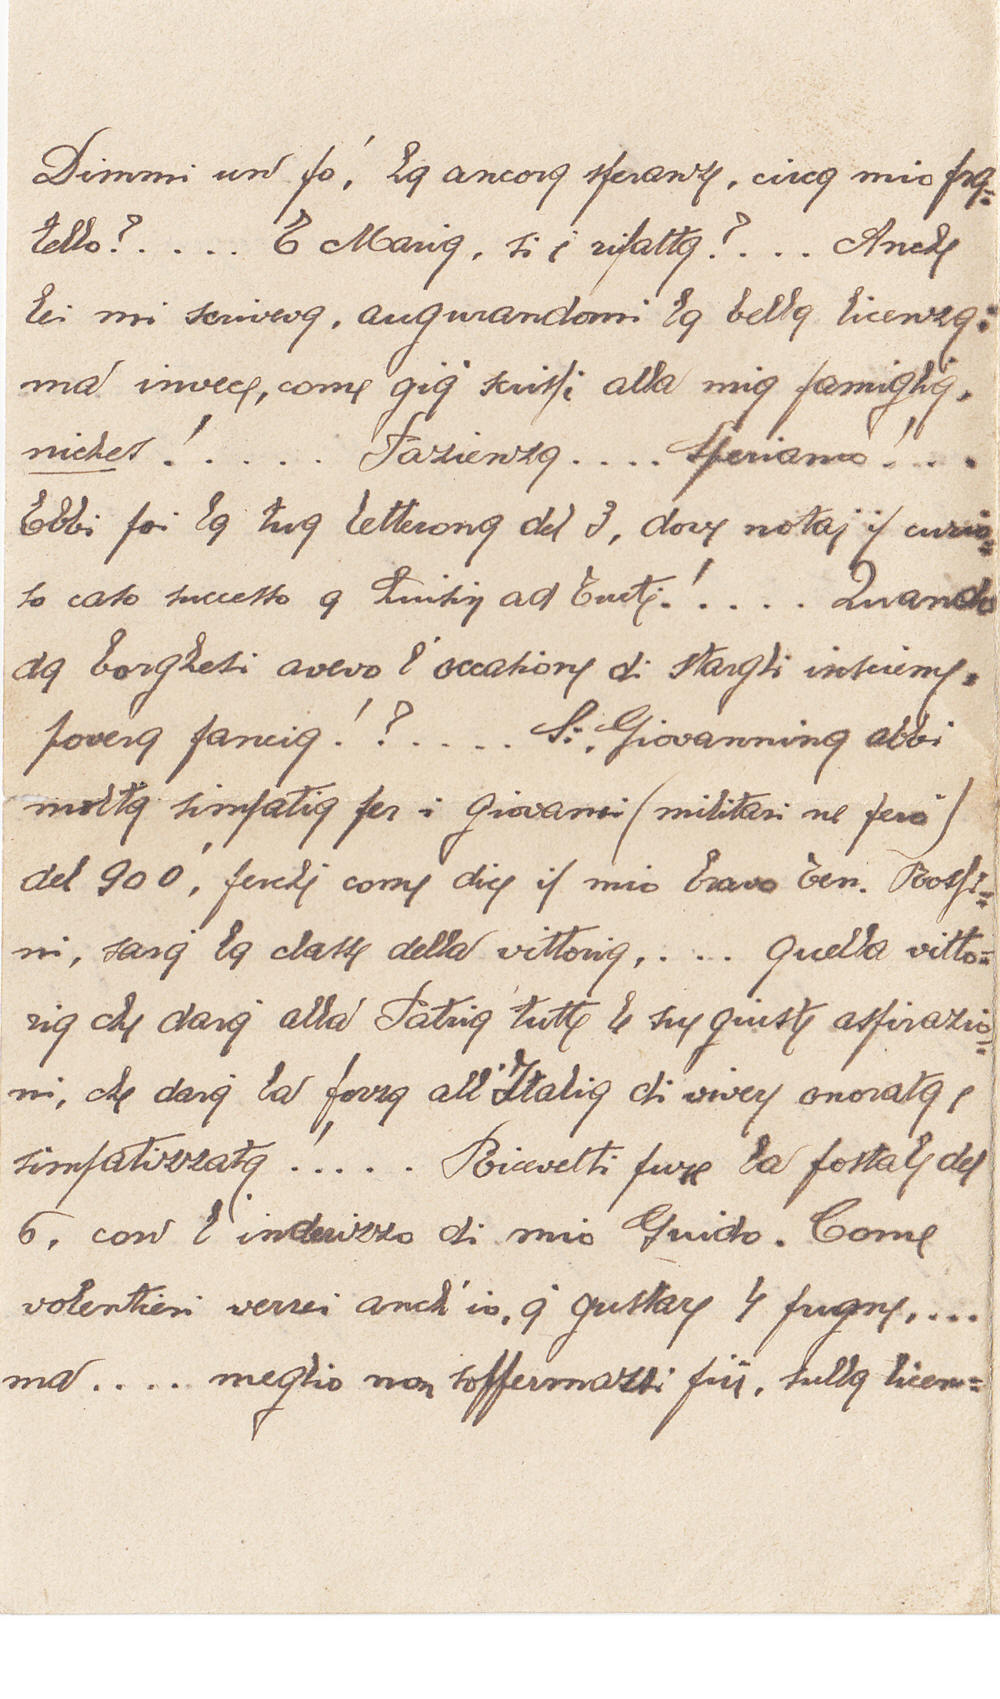 Dimmi un pò, ha ancora speranze, circa mio fra=
tello?.... E Maria, si è rifatta?.... Anche
lei mi scriveva, augurandomi la bella licenza;
ma invece, come già scrissi alla mia famiglia,
niches!..... Pazienza.... Speriamo!...
Ebbi poi la tua letterona del 3, dove notai il curio=
so caso successo a ad!.... Quando
da borghesi avevo l'occasione di stargli insieme,
povera pancia!?..... Si, Giovannina abbi
molta simpatia per i giovani (militari ne però)
del 900', perchè come dice il mio bravo Ten. Rossi=
ni, sarà la classe della vittoria,.... quella vitto=
ria che darà alla Patria tutte le sue giuste aspirazio=
ni, che darà la forza all'Italia di vivere onorata e
simpatizzata!..... Ricevetti pure la postale del
6, con l'inderizzo di mio Guido. Come
volentieri verrei anch'io, a gustare 4 pugne,....
ma.... meglio non soffermarsi più, sulla licen=